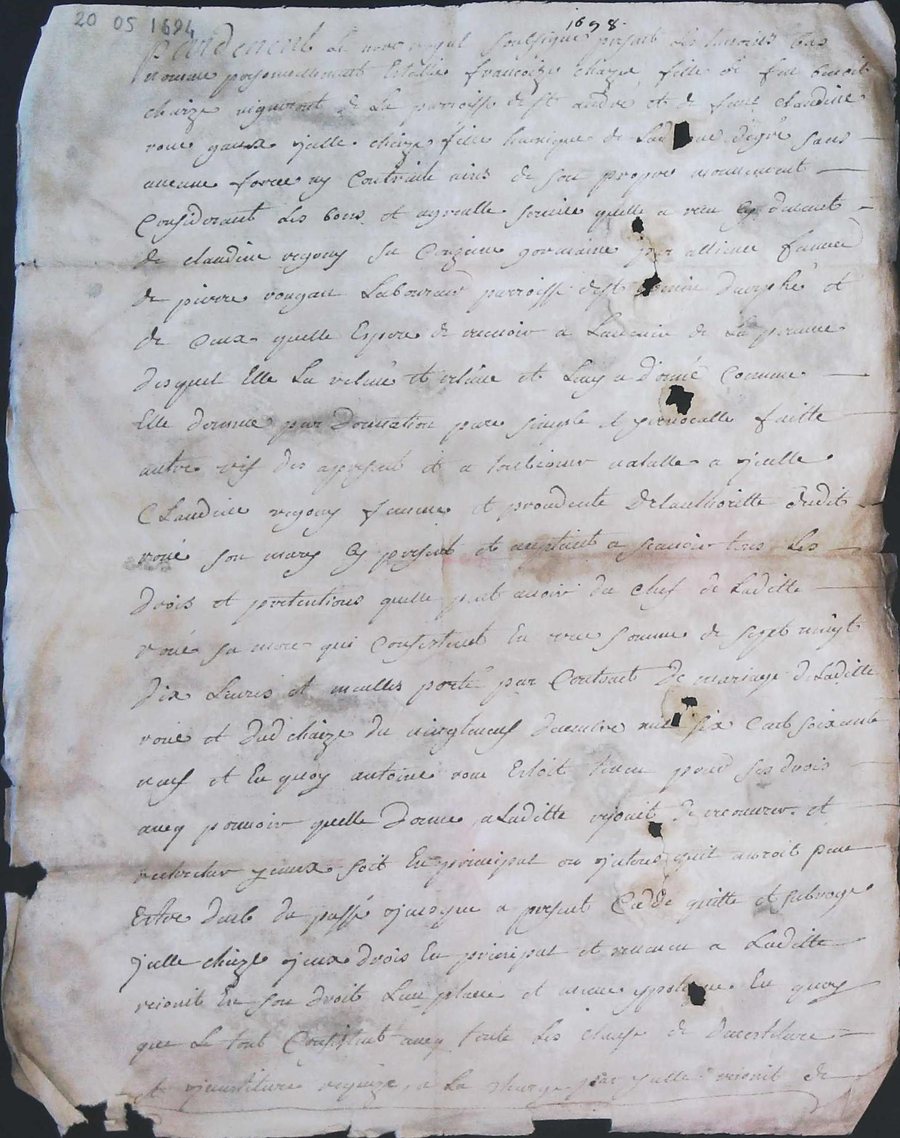 20 05 1694
1698.
Pardevant le nore royal soubsigné presant les tesmoins bas
nommé personnellement Establie francoize chaize fille de feu benoit
chaize vigneront de la parroisse de st andré et de feue claudine
roue jcelle chaize fille hunique de son gré sans
aucune force ny Contrainte ains de son propre mouvement
Considerant les bons et agreable service quelle a receu cy devant
de claudine vejony sa Cozine germaine par alliance femme
de pierre Laboureur parroisse de st et
de Ceux quelle Espere de recevoir a Ladvenir de La preuve
desquel Elle La relevé et releve et Luy a Donné Comme
Elle donne par Donnation pure simple et jrevocable faitte
entre vif des appresent et a tousiours valable a jcelle
Claudine vejony femme et procedente De lauthoritté dudit
son mary Cy present et acceptant a scavoir tous Les
drois et pretentions quelle peut avoir du chef de Laditte
roue sa mere qui Consistent En une somme de sept vingt
dix Livres et meubles porté par Contrat De mariage de Laditte
roue et dud chaize du vingtneuf decembre mil six Cent soixante
neuf et En quoy antoine roue Estoit tenu pour ses drois
avec pouvoir quelle Donne a Laditte vejonit de recouvrer et
rechercher jceux soit En principal ou jnterest quil auroit peut
Estre deub du passé jusque a present Cede quitte et subroge
jcelle chaize jceux drois En principal et a Laditte
vejonit En son droit Lieu place et mesme ypoteque En quoy
que Le tout Consistent avec toute Les clause de devestiture
et jnvestiture requize a La charge par jcelle vejonit de